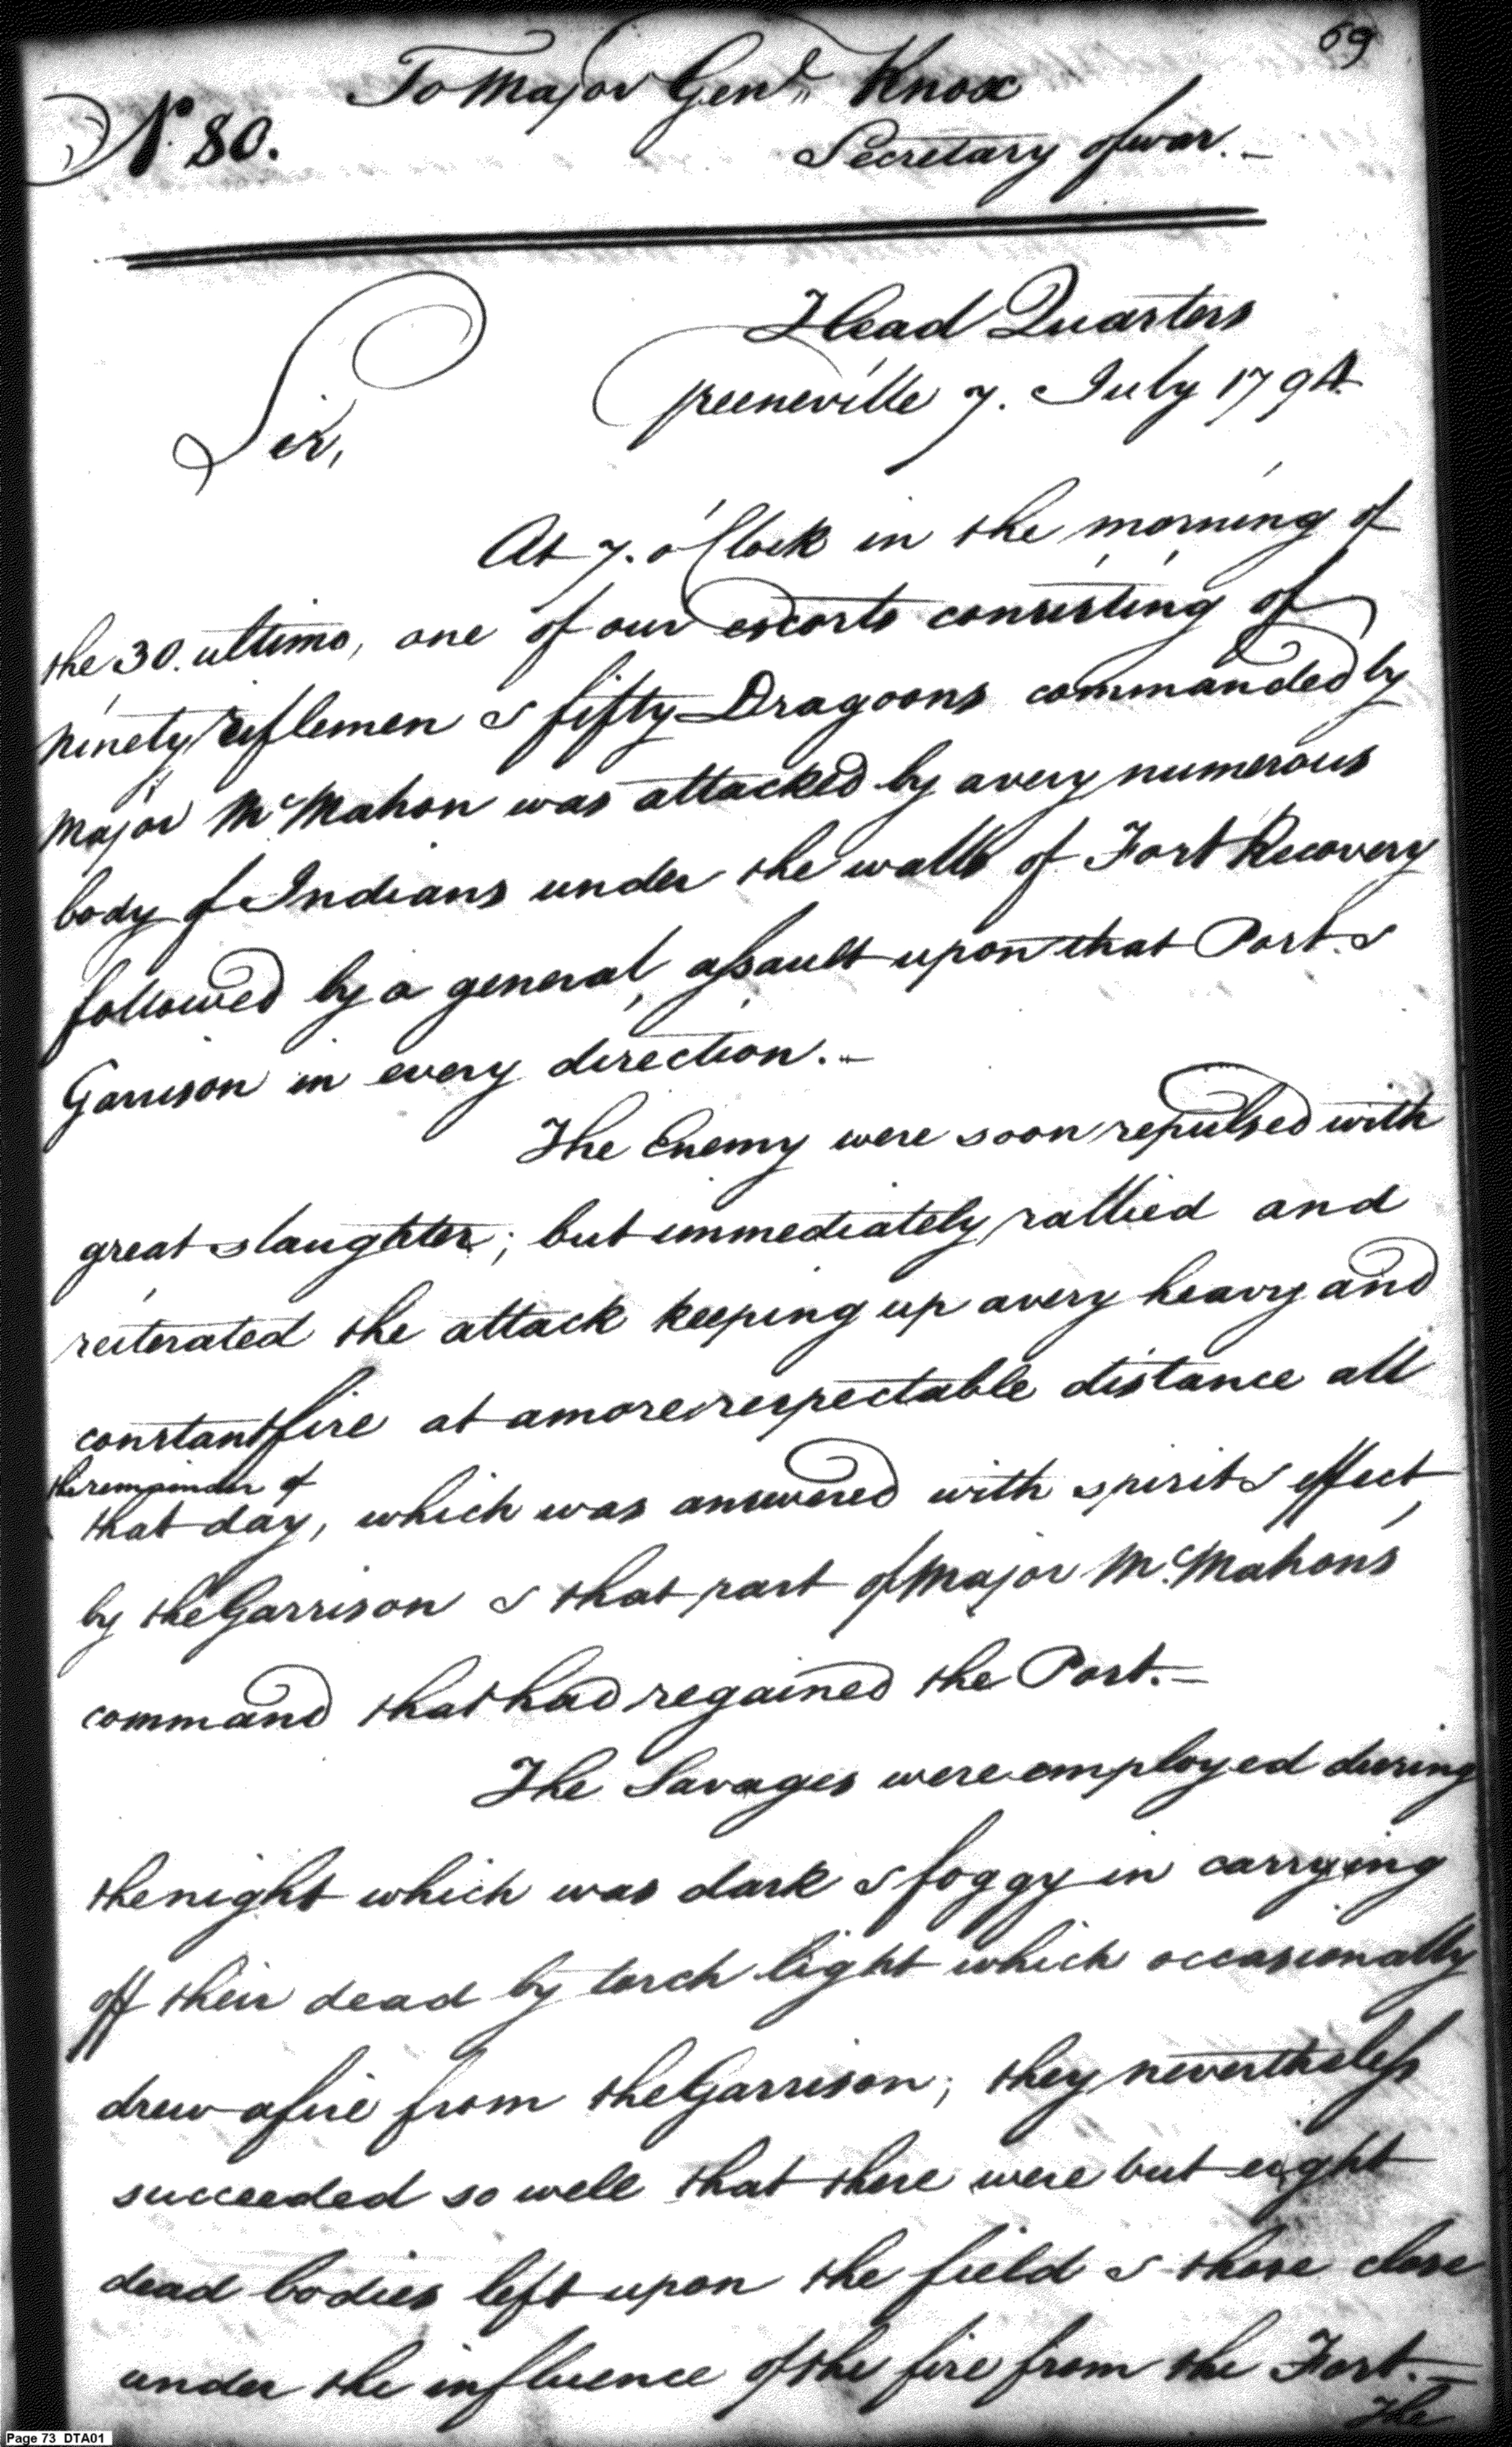 69
To Major Genl. Knox
No. 80.
Secretary of war.
Head Quarters
Greeneville 7. July 1794.
Sir,
At 7. o'Clock in the morning of
the 30. ultimo, one of our escorts consisting of
ninety riflemen & fifty Dragoons commanded by
Major McMahon was attacked by a very numerous
body of Indians under the walls of Fort Recovery
followed by a general assault upon that Post &
Garrison in every direction.
The Enemy were soon repulsed with
great slaughter; but immediately rallied and
reiterated the attack keeping up a very heavy and
constant fire at a more respectable distance all
the remainder of
that day, which was answered with spirit & effect
by the Garrison & that part of Major McMahon's
command that had regained the Post.
The Savages were employed during
the night which was dark & foggy in carrying
off their dead by torch light which occasionally
drew a fire from the Garrison; they nevertheless
succeeded so well that there were but eight
dead bodies left upon the field & those close
under the influence of the fire from the Fort.
The
Page 73 DTA01